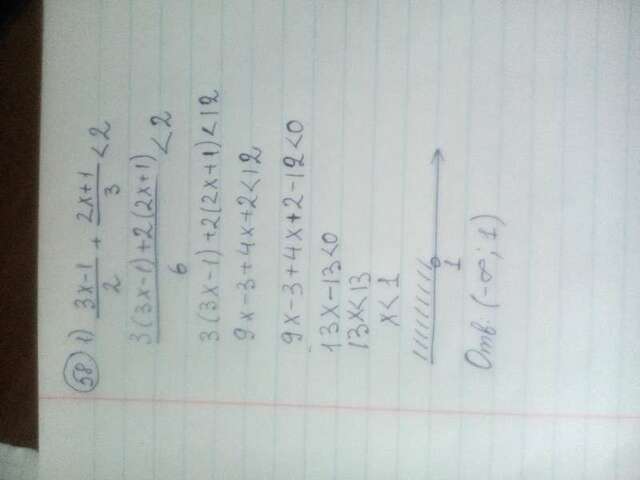 58. 1) (3x-1)/2 + (2x+1)/3 < 2
(3(3x-1)+2(2x+1))/6 < 2
3(3x-1)+2(2x+1)<12
9x-3+4x+2<12
9x-3+4x+2-12<0
13x-13<0
13x<13
x<1
1
Отв: (-∞; 1)